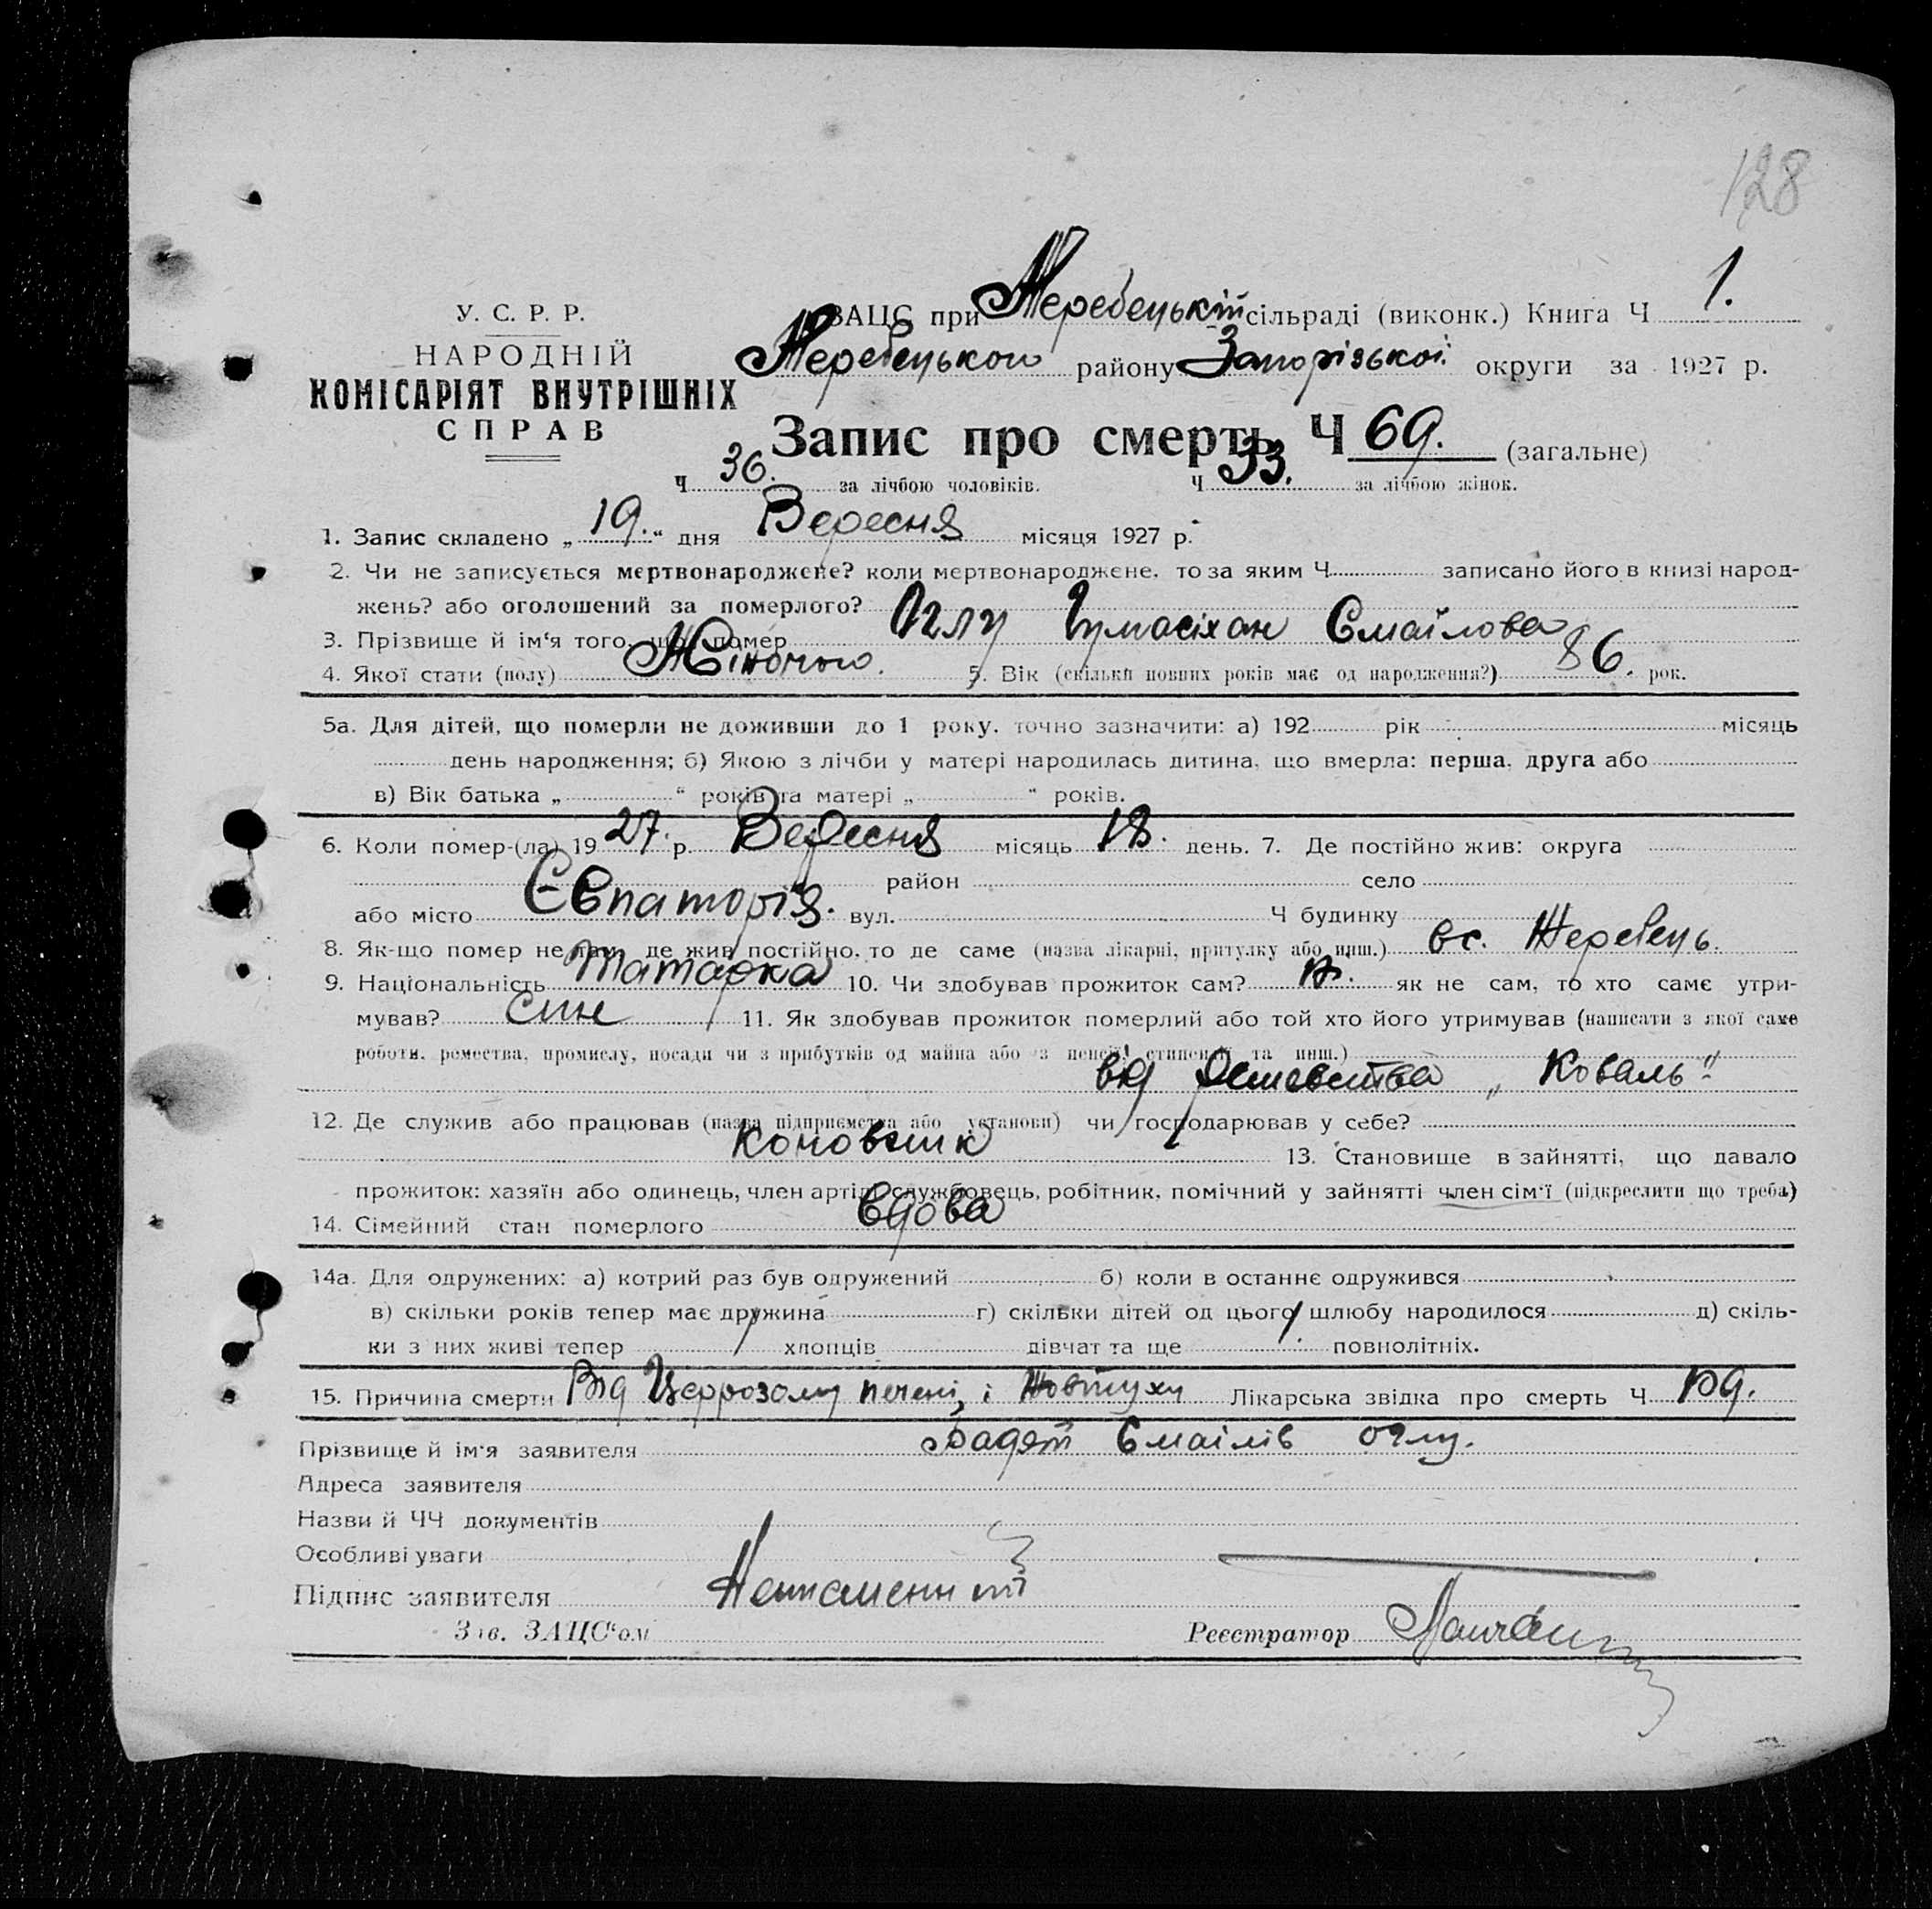 128
У. С. Р. Р.
НАРОДНІЙ
КОМІСАРІЯТ ВНУТРІШНІХ
СПРАВ
ЗАЦС при Жеребецькій сільраді (виконк.) Книга Ч 1.
Жеребецького району Запорізької округи за 1927 р.
Запис про смерть Ч 69. (загальне)
Ч 36. за лічбою чоловіків. Ч 33. за лічбою жінок.
1. Запис складено „ 19. “ дня Вересня місяця 1927 р.
2. Чи не записується мертвонароджене? коли мертвонароджене, то за яким Ч записано його в книзі народ-
жень? або оголошений за померлого?
3. Прізвище й ім‘я того, що помер Оглу Гумасіхан Смаілова
4. Якої стати (полу) Жіночою. 5. Вік (скільки повних років має од народження?) 86. рок.
5а. Для дітей, що померли не доживши до 1 року, точно зазначити: а) 192 рік місяць
день народження; б) Якою з лічби у матері народилась дитина, що вмерла: перша, друга або
в) Вік батька „ “ років та матері „ “ років.
6. Коли помер-(ла) 19 27. р. Вересня місяць 18. день. 7. Де постійно жив: округа
район село
або місто Євпаторія. вул. Ч будинку
8. Як-що помер не там, де жив постійно, то де саме (назва лікарні, притулку або инш.) в с. Жеребець.
9. Національність Татарка 10. Чи здобував прожиток сам? як не сам, то хто саме утри-
мував? син 11. Як здобував прожиток померлий або той хто його утримував (написати з якої саме
роботи, ремества, промислу, посади чи з прибутків од майна або з пенсії, стипендії та инш.)
від Ремевства „ Коваль “
12. Де служив або працював (назва підприємства або установи) чи господарював у себе?
13. Становище в зайнятті, що давало
прожиток: хазяїн або одинець, член артілі, службовець, робітник, помічний у зайнятті член сім‘ї (підкреслити що треба)
14. Сімейний стан померлого вдова
14а. Для одружених: а) котрий раз був одружений б) коли в останнє одружився
в) скільки років тепер має дружина г) скільки дітей од цього шлюбу народилося д) скіль-
ки з них живі тепер хлопців дівчат та ще повнолітніх.
15. Причина смерти Від Церрозому печені, і Жовтуху Лікарська звідка про смерть Ч
Прізвище й ім‘я заявителя Смаілів оглу.
Адреса заявителя
Назви й ЧЧ документів
Особливі уваги
Підпис заявителя Неписьменний
Зав. ЗАЦС‘ом Реєстратор